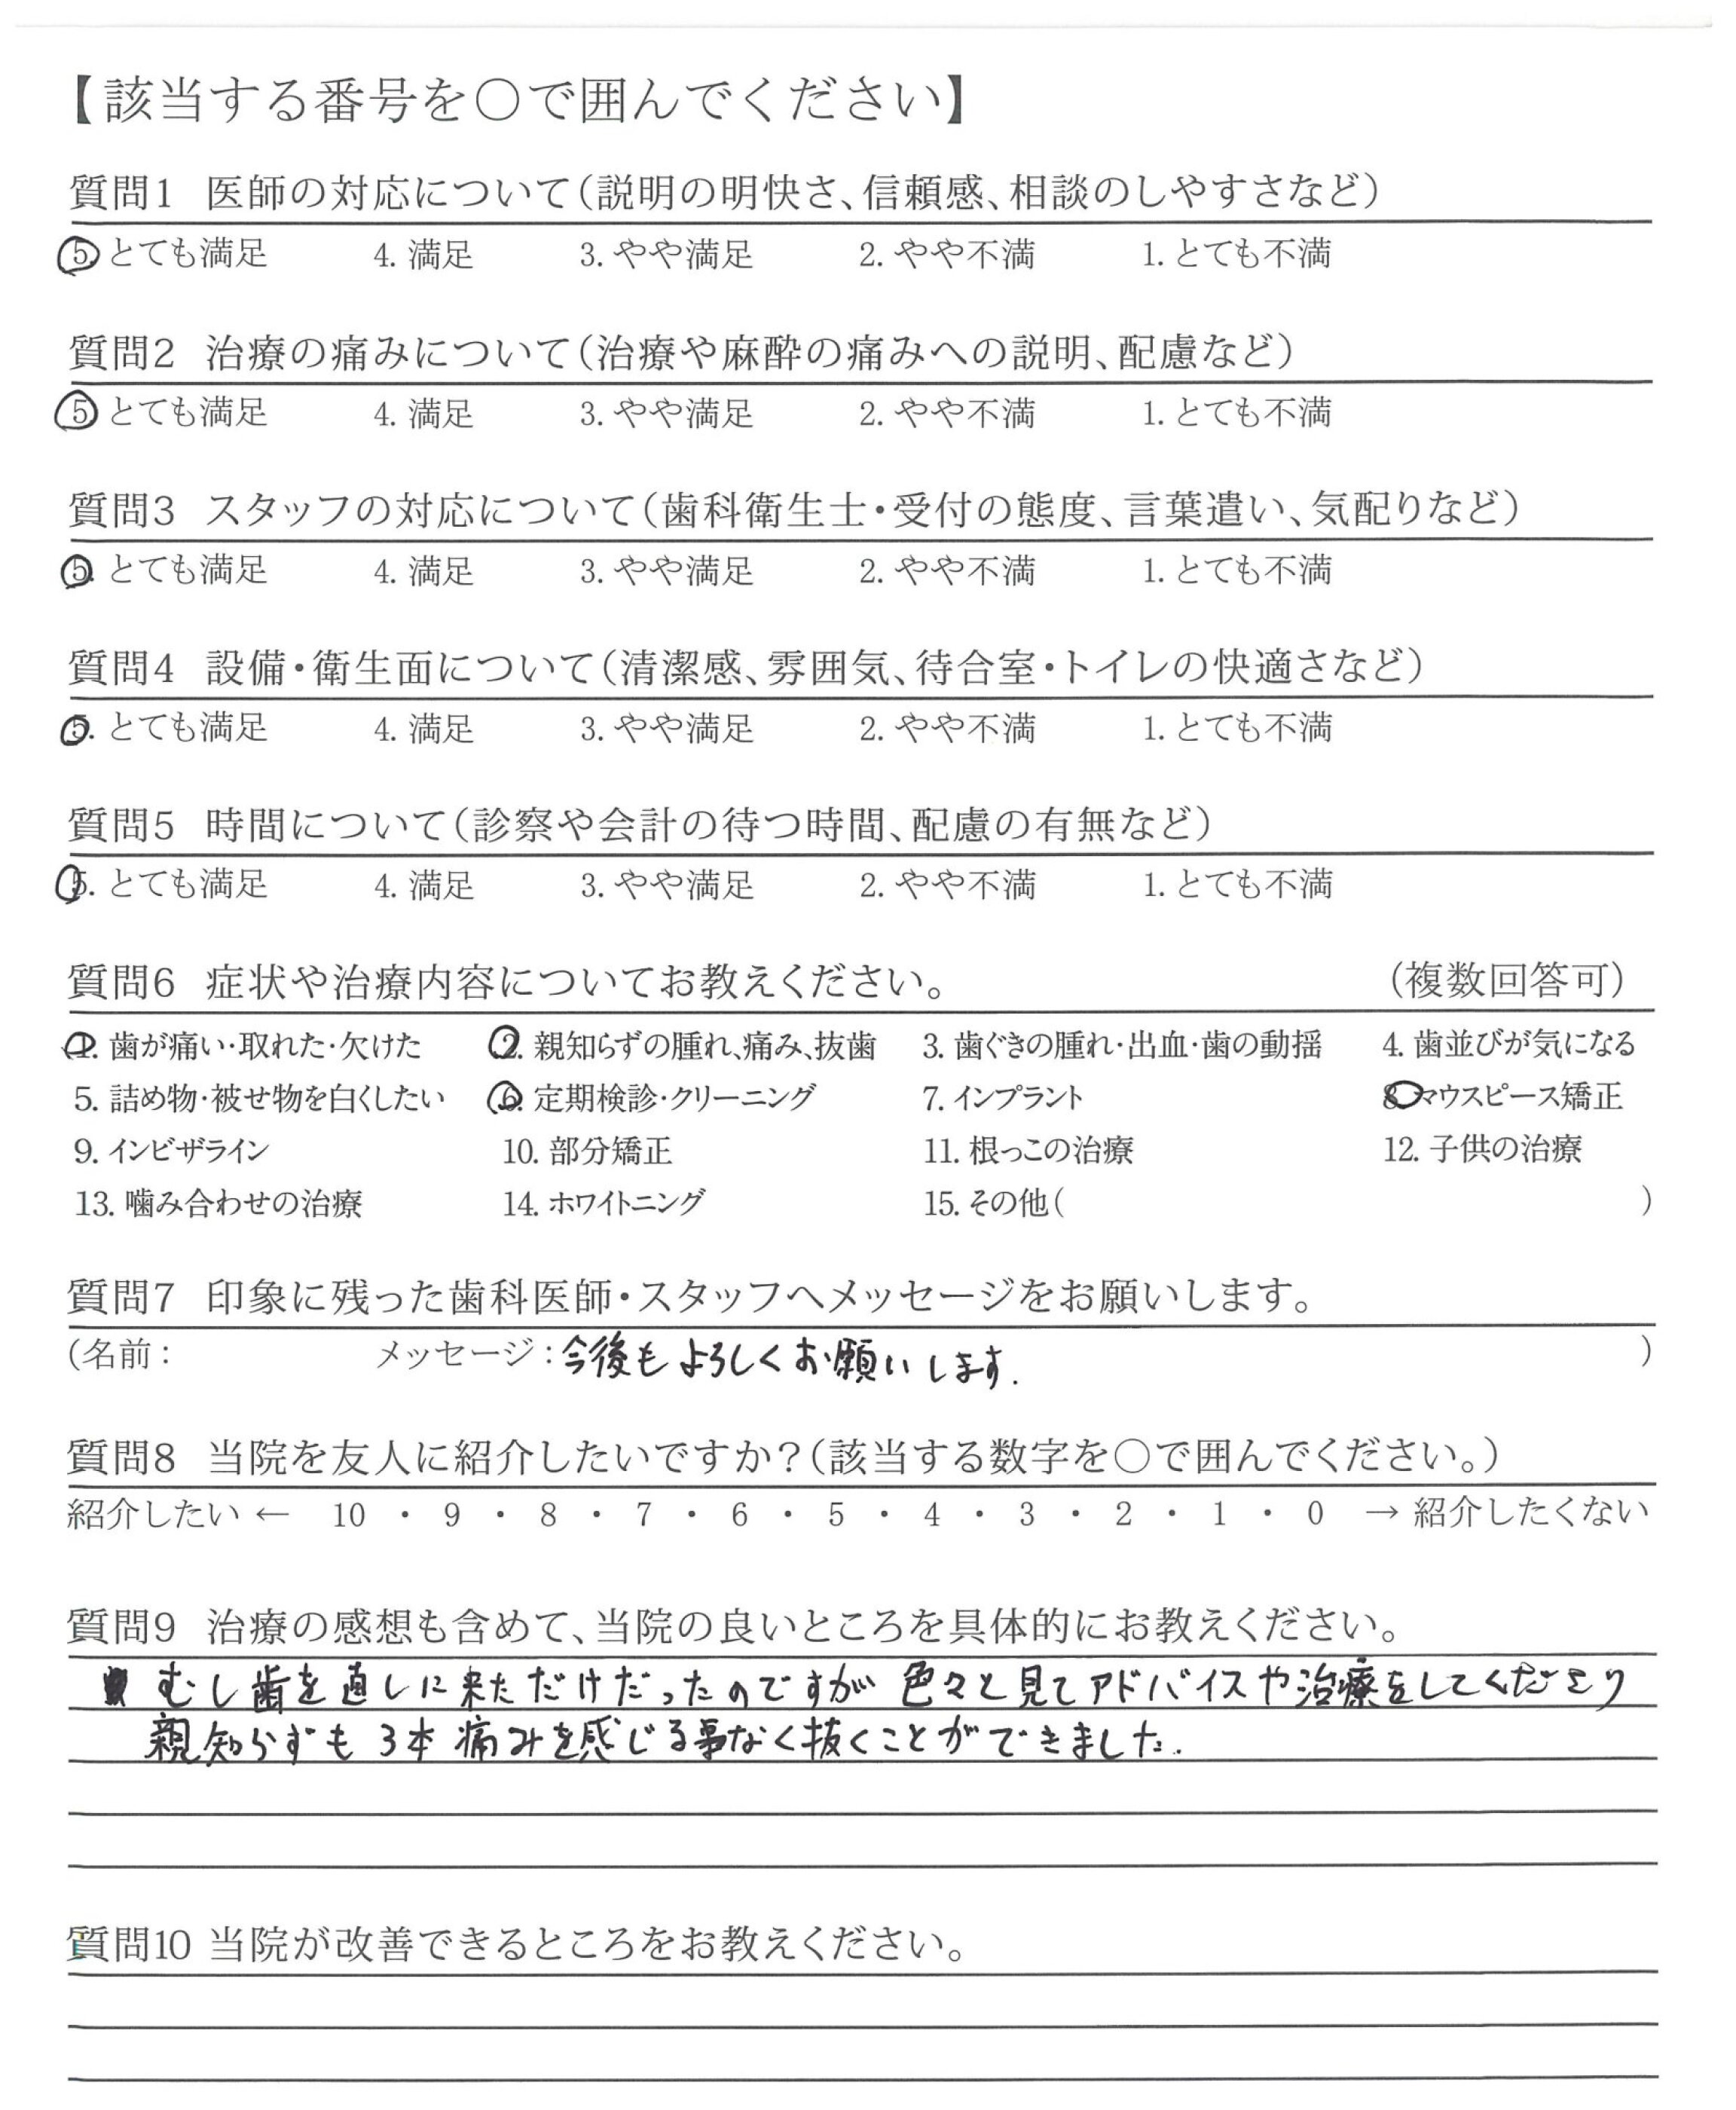 【該当する番号を○で囲んでください】
質問1 医師の対応について(説明の明快さ、信頼感、相談のしやすさなど)
5. とても満足 4. 満足 3. やや満足 2. やや不満 1. とても不満
質問2 治療の痛みについて(治療や麻酔の痛みへの説明、配慮など)
5. とても満足 4. 満足 3. やや満足 2. やや不満 1. とても不満
質問3 スタッフの対応について(歯科衛生士・受付の態度、言葉遣い、気配りなど)
5. とても満足 4. 満足 3. やや満足 2. やや不満 1. とても不満
質問4 設備・衛生面について(清潔感、雰囲気、待合室・トイレの快適さなど)
5. とても満足 4. 満足 3. やや満足 2. やや不満 1. とても不満
質問5 時間について(診察や会計の待つ時間、配慮の有無など)
5. とても満足 4. 満足 3. やや満足 2. やや不満 1. とても不満
質問6 症状や治療内容についてお教えください。 (複数回答可)
1. 歯が痛い・取れた・欠けた 2. 親知らずの腫れ、痛み、抜歯 3. 歯ぐきの腫れ・出血・歯の動揺 4. 歯並びが気になる
5. 詰め物・被せ物を白くしたい 6. 定期検診・クリーニング 7. インプラント 8. マウスピース矯正
9. インビザライン 10. 部分矯正 11. 根っこの治療 12. 子供の治療
13. 噛み合わせの治療 14. ホワイトニング 15. その他( )
質問7 印象に残った歯科医師・スタッフへメッセージをお願いします。
(名前: メッセージ:今後もよろしくお願いします. )
質問8 当院を友人に紹介したいですか?(該当する数字を○で囲んでください。)
紹介したい ← 10 ・ 9 ・ 8 ・ 7 ・ 6 ・ 5 ・ 4 ・ 3 ・ 2 ・ 1 ・ 0 → 紹介したくない
質問9 治療の感想も含めて、当院の良いところを具体的にお教えください。
むし歯を直しに来ただけだったのですが 色々と見てアドバイスや治療をしてくださり
親知らずも 3本 痛みを感じる事なく抜くことができました.
質問10 当院が改善できるところをお教えください。